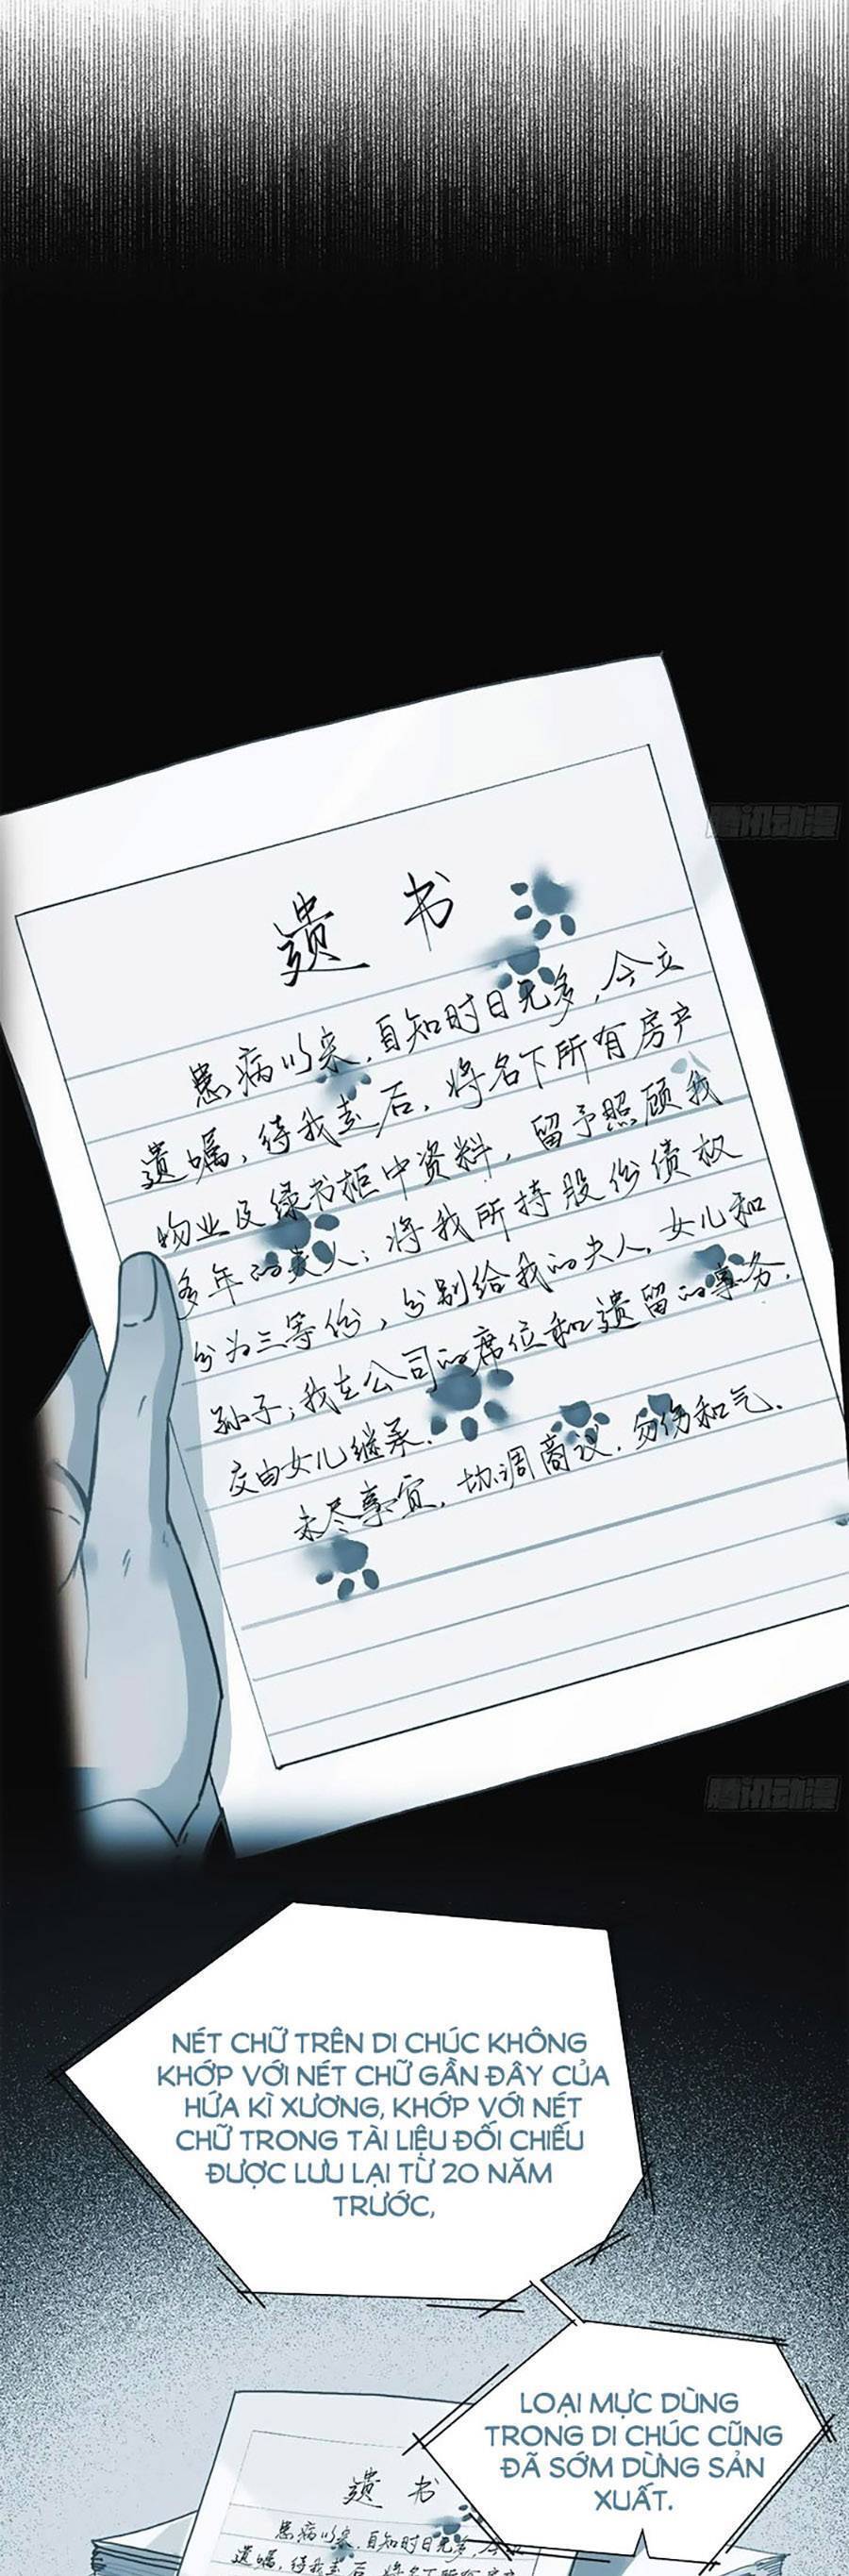 腾讯动漫
遗书
患病以来，自知时日无多，今立
遗嘱，待我走后，将名下所有房产
物业及绿书柜中资料，留予照顾我
多年的美人；将我所持股份债权
分为三等份，分别给我的夫人，女儿和
孙子；我在公司的席位和遗留的事务，
交由女儿继承。
未尽事宜，协调商议，勿伤和气。
腾讯动漫
NÉT CHỮ TRÊN DI CHÚC KHÔNG
KHỚP VỚI NÉT CHỮ GẦN ĐÂY CỦA
HỨA KÌ XƯƠNG, KHỚP VỚI NÉT
CHỮ TRONG TÀI LIỆU ĐỐI CHIẾU
ĐƯỢC LƯU LẠI TỪ 20 NĂM
TRƯỚC,
LOẠI MỰC DÙNG
TRONG DI CHÚC CŨNG
ĐÃ SỚM DỪNG SẢN
XUẤT.
遗书
患病以来，自知时日无多，今立
遗嘱，待我走后，将名下所有房产